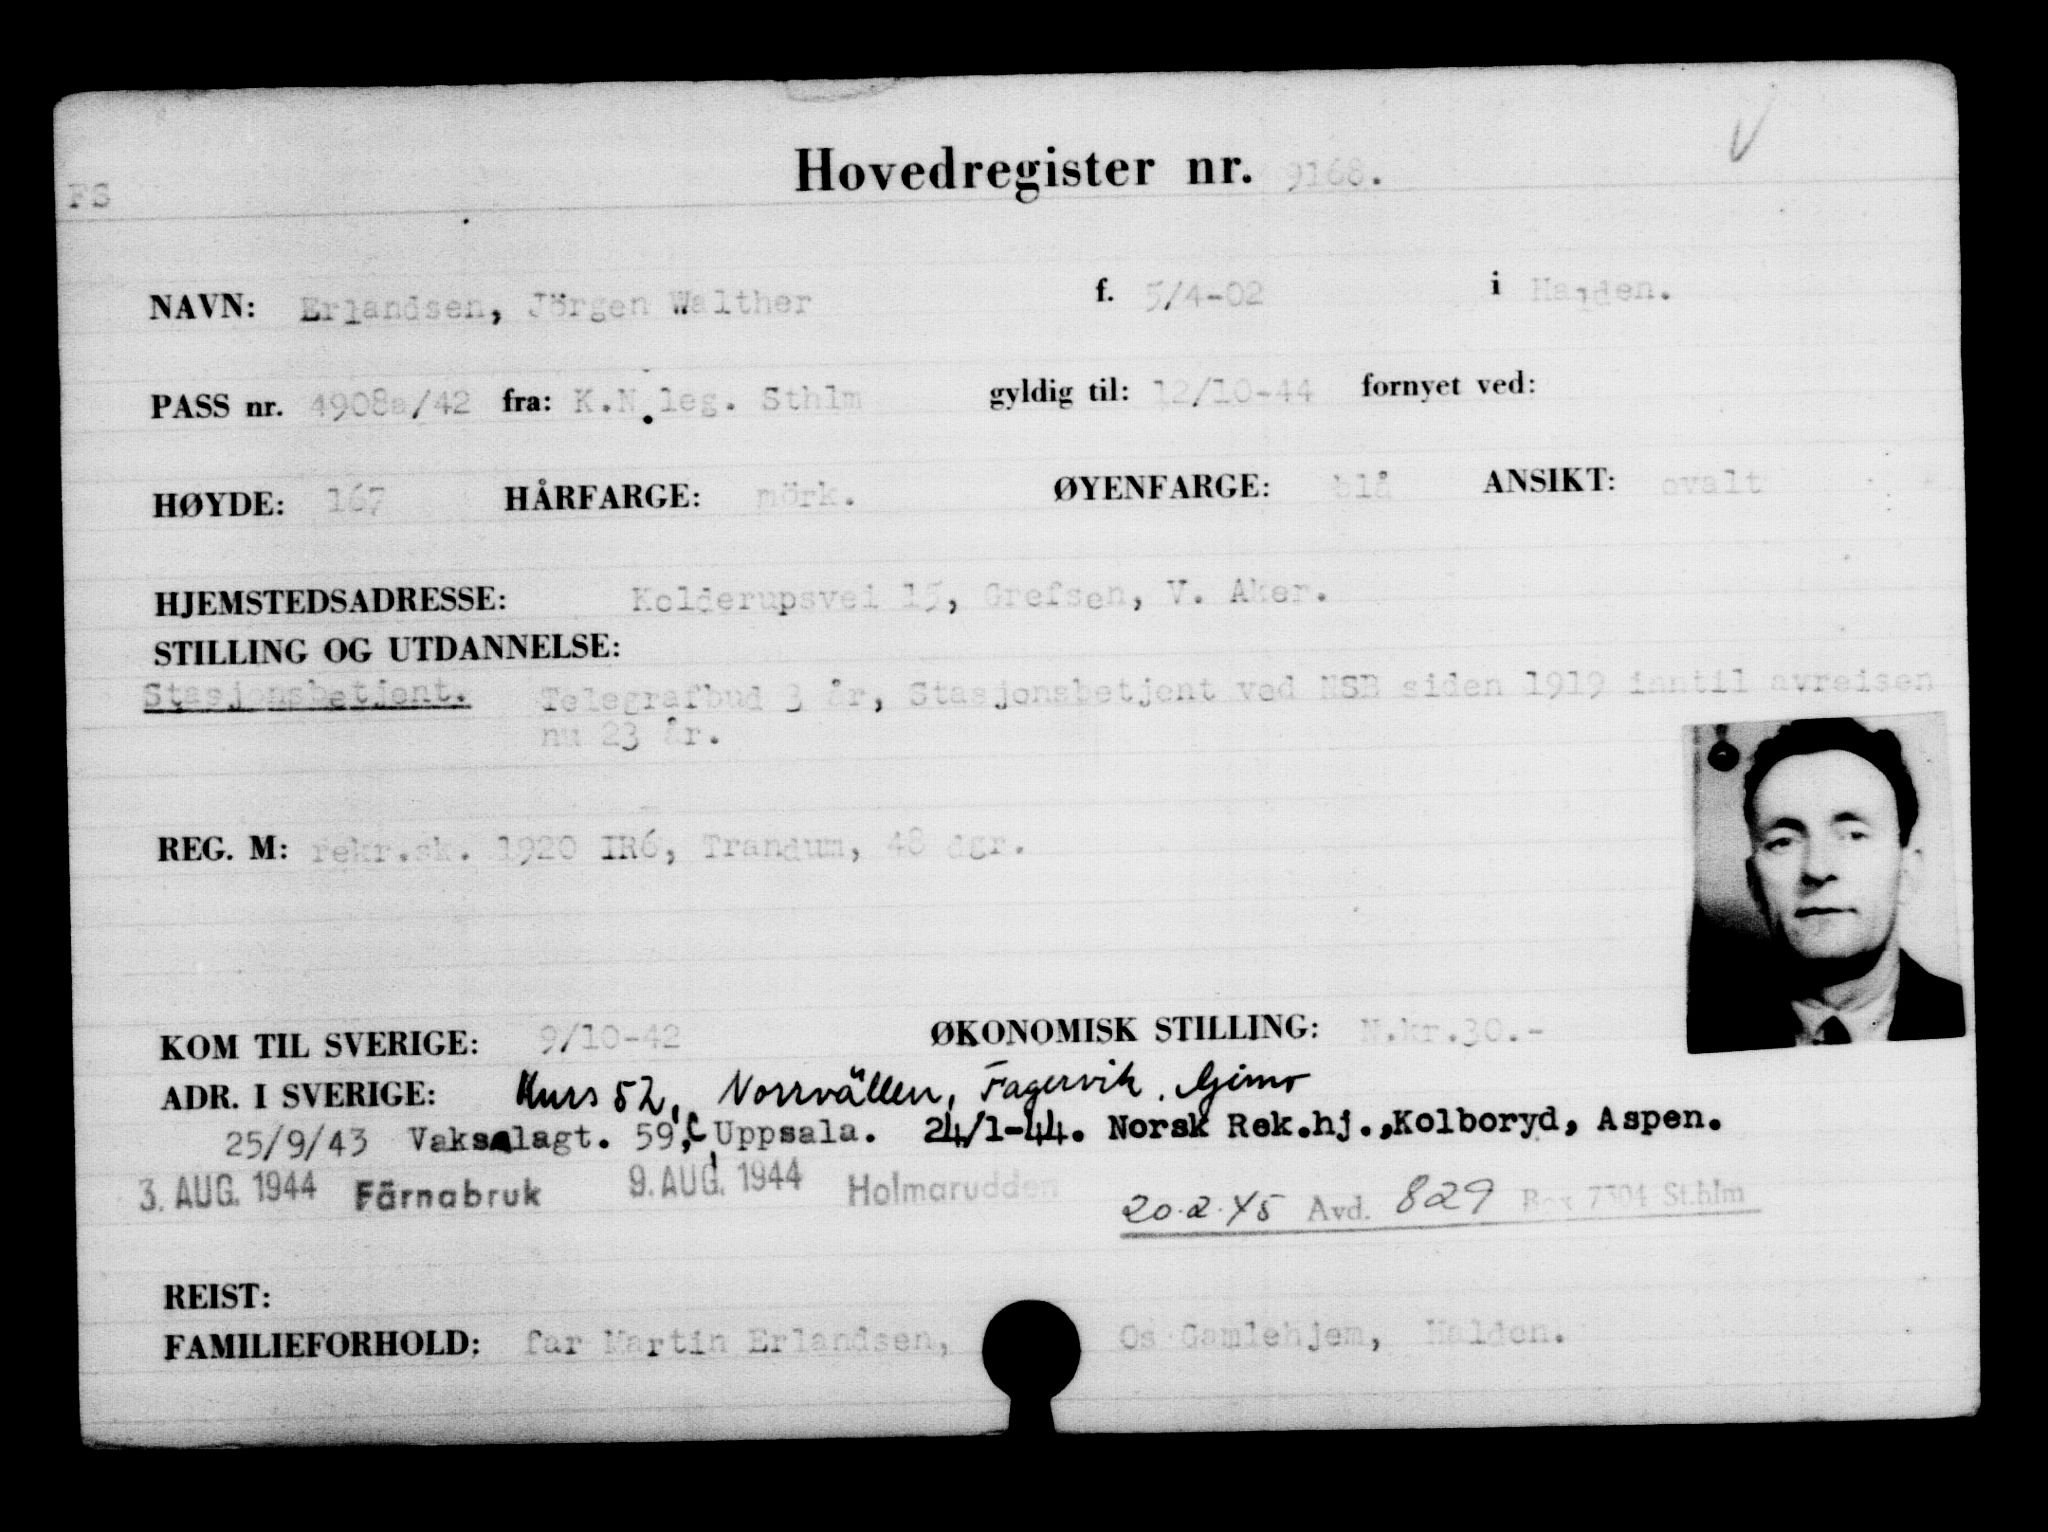 Hovedregister nr. 9168.
FS
NAVN: Erlandsen, Jörgen Walther f. 5/4-02 i Halden.
PASS nr. 4908a/42 fra: K.N.leg. Sthlm gyldig til: 12/10-44 fornyet ved:
HØYDE: 167 HÅRFARGE: mörk. ØYENFARGE: blå ANSIKT: ovalt
HJEMSTEDSADRESSE: Kolderupsvei 15, Grefsen, V. Aker.
STILLING OG UTDANNELSE:
Stasjonsbetjent. Telegrafbud 3 år, Stasjonsbetjent ved NSB siden 1919 inntil avreisen
nu 23 år.
REG. M: rekr.sk. 1920 IR6, Trandum, 48 dgr.
KOM TIL SVERIGE: 9/10-42 ØKONOMISK STILLING: N.kr.30.-
ADR. I SVERIGE: Hus 52, Norrvällen, Fagervik, Gimo
25/9/43 Vaksalagt. 59, C Uppsala. 24/1-44. Norsk Rek.hj.,Kolboryd, Aspen.
3. AUG. 1944 Färnabruk 9. AUG. 1944 Holmarudden 20.2.45 Avd. 829 Box 7304 Sthlm
REIST:
FAMILIEFORHOLD: far Martin Erlandsen, Os Gamlehjem, Halden.